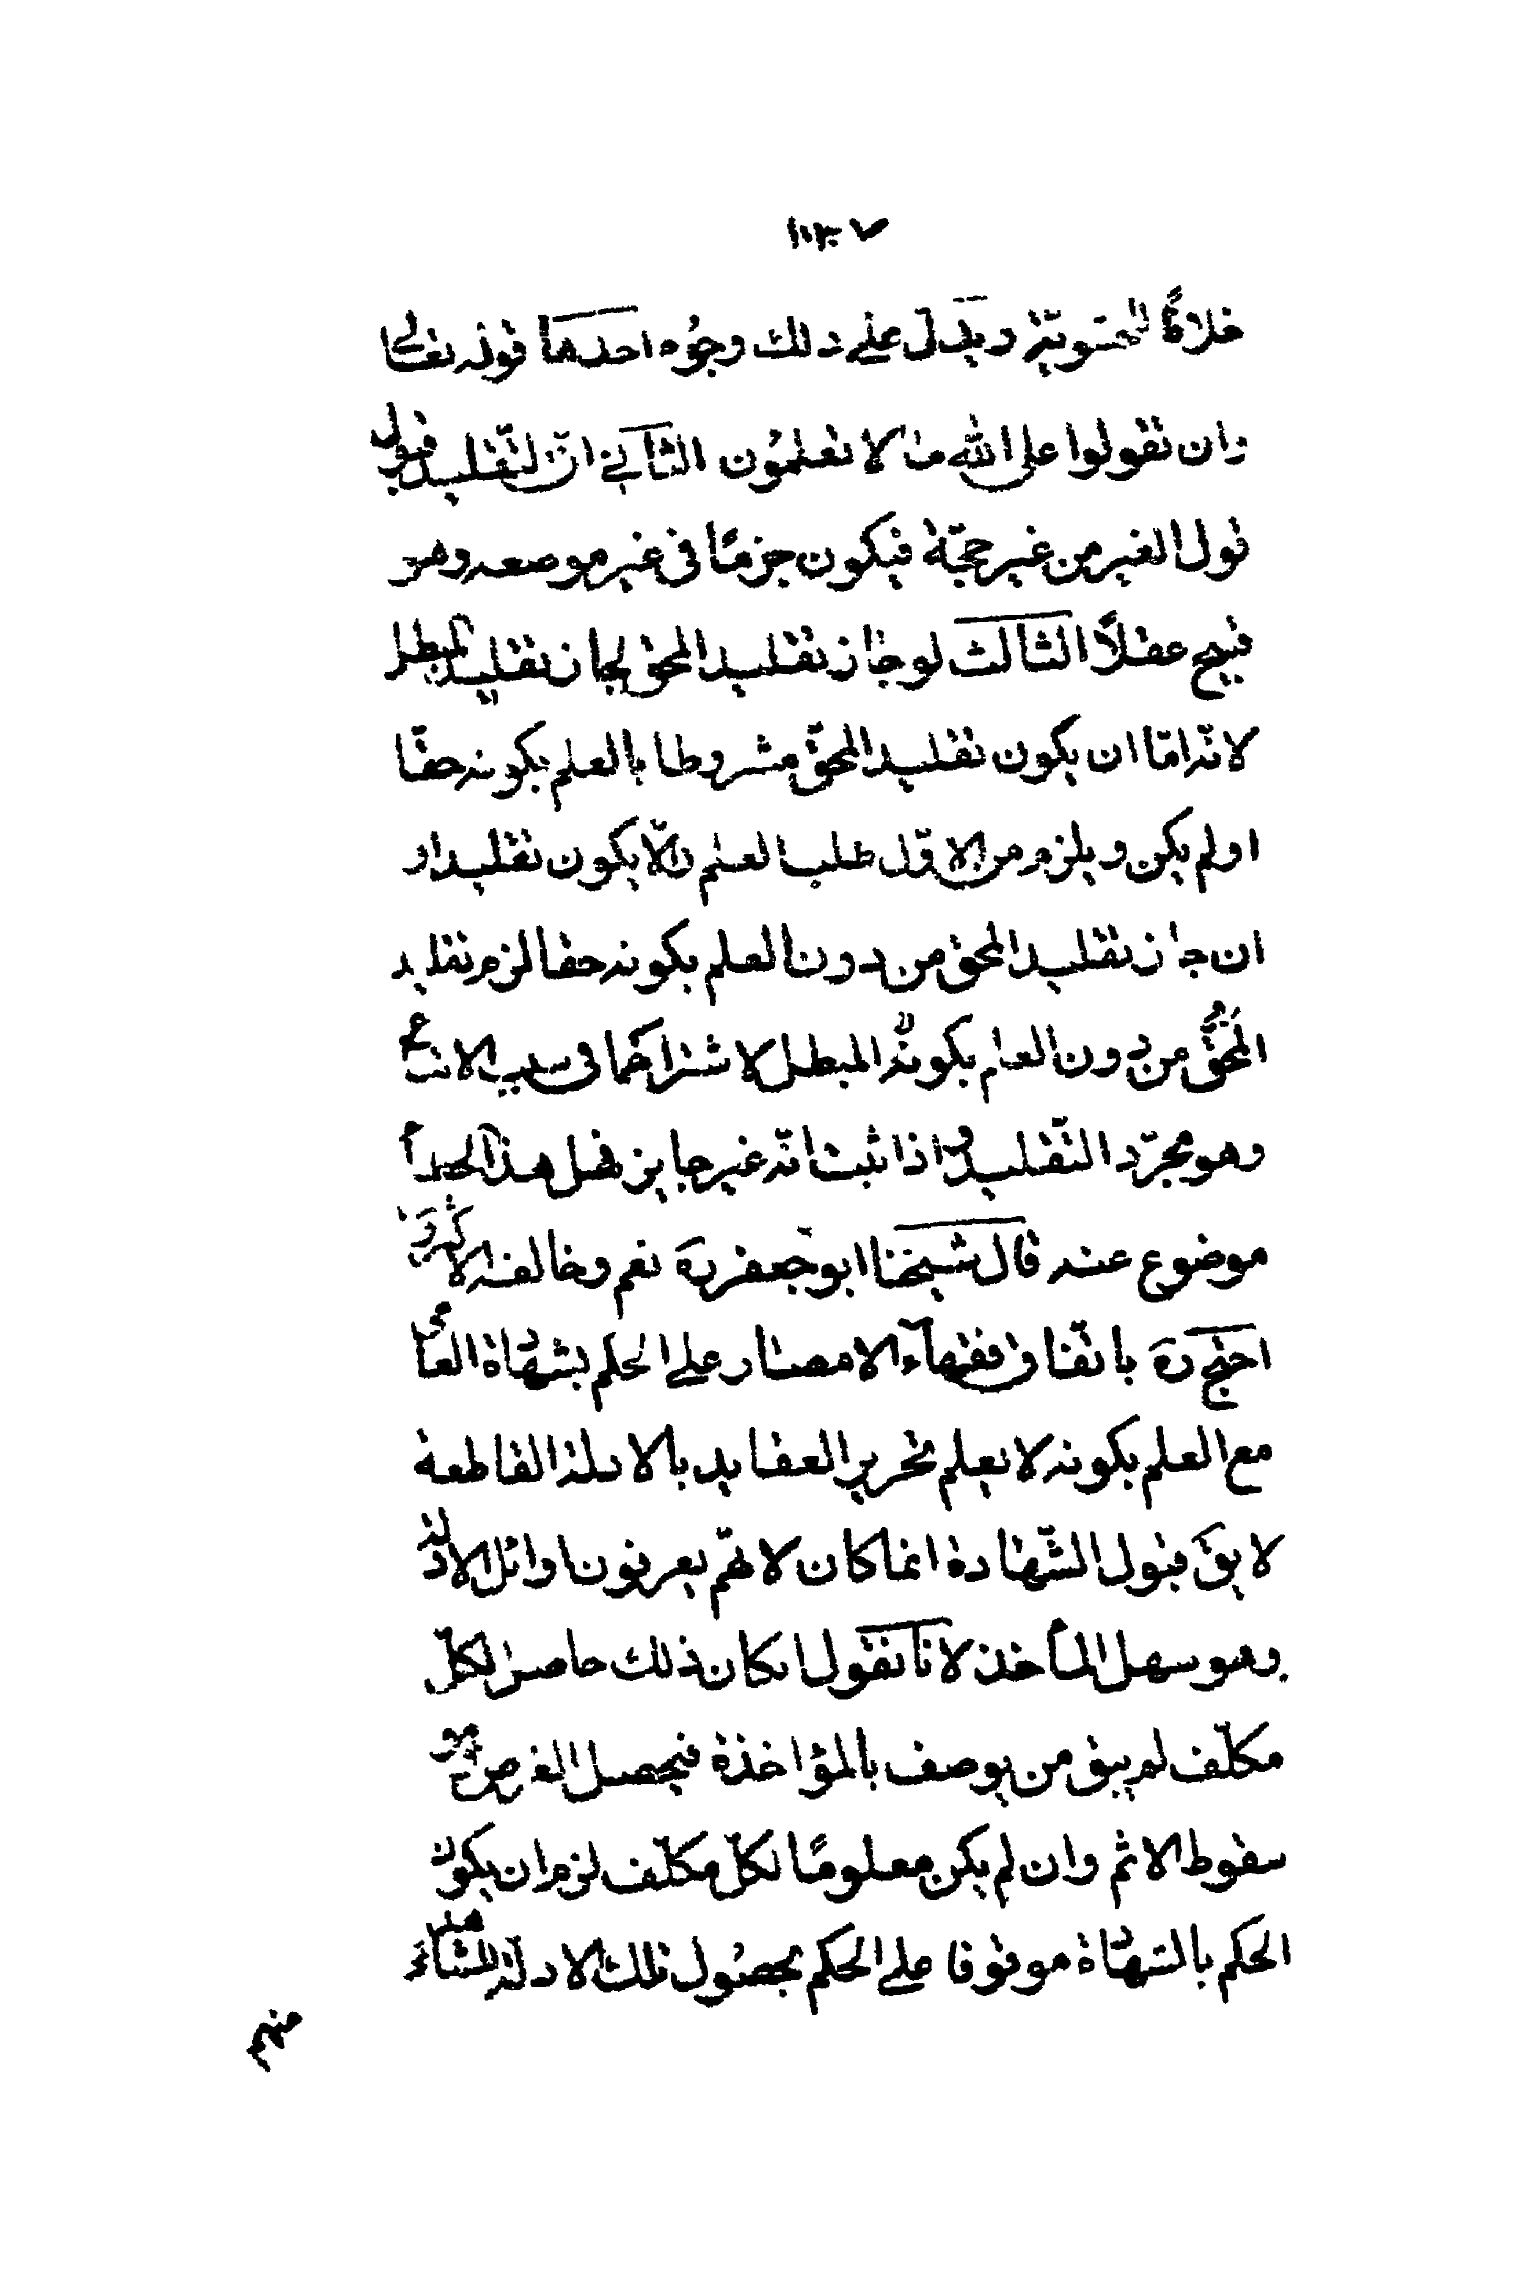 خلافًا للحشويّة ويدلّ على ذلك وجوه احدها قوله تعالى
وان تقولوا على الله ما لا تعلمون الثاني انّ التّقليد قبول
قول الغير من غير حجّة فيكون جزمًا في غير موضعه وهو
قبيح عقلاً الثالث لو جاز تقليد المحق لجاز تقليد المبطل
لانّه امّا ان يكون تقليد المحقّ مشروطا بالعلم بكونه حقّا
او لم يكن ويلزم من الاوّل طلب العلم والّا يكون تقليدا و
ان جاز تقليد المحق من دون العلم بكونه حقا لزم تقليد
المحقّ من دون العلم بكونه المبطل لاشتراكهما في سبب الاتباع
وهو مجرّد التّقليد واذا ثبت انّه غير جايز فهل هذا الخطأ
موضوع عنه قال شيخنا ابو جعفر ره نعم وخالفه الاكثرون
احتج ره باتّفاق فقهآء الامصار على الحكم بشهادة العامي
مع العلم بكونه لا يعلم تحرير العقايد بالادلة القاطعة
لا يق قبول الشّهادة انما كان لانهّم يعرفون اوائل الادلة
وهو سهل المأخذ لانا نقول ان كان ذلك حاصلا لكلّ
مكلّف لم يبق من يوصف بالمؤاخذة فيحصل الغرض وهو
سقوط الاثم وان لم يكن معلومًا لكلّ مكلّف لزم ان يكون
الحكم بالشهادة موقوفا على الحكم بحصول تلك الادلة للشاهد
منهم